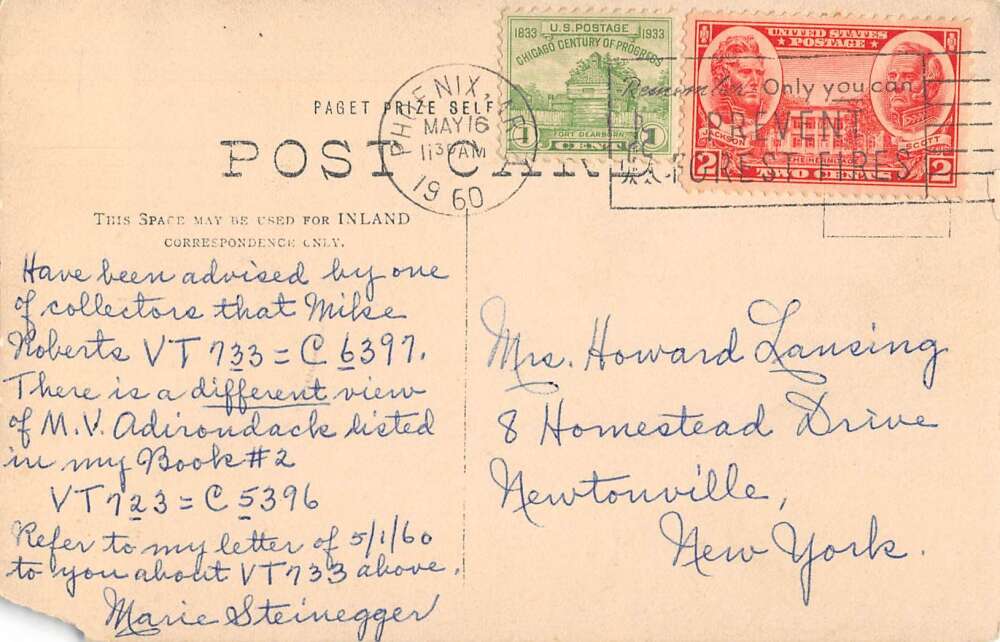 1833 U.S. POSTAGE 1933
CHICAGO CENTURY OF PROGRESS
FORT DEARBORN
1 CENT 1
UNITED STATES
POSTAGE
JACKSON
SCOTT
THE HERMITAGE
2 TWO CENTS 2
PHOENIX,
MAY 16
11 30 AM
1960
Remember Only you can
PREVENT
FOREST FIRES
PAGET PRIZE SELF
POST CARD
THIS SPACE MAY BE USED FOR INLAND
CORRESPONDENCE ONLY.
Have been advised by one
of collectors that Mike
Roberts VT 733 = C 6397.
There is a different view
of M.V. Adirondack listed
in my Book #2
VT 723 = C 5396
Refer to my letter of 5/1/60
to you about VT 733 above.
Marie Steinegger
Mrs. Howard Lansing
8 Homestead Drive
Newtonville,
New York.